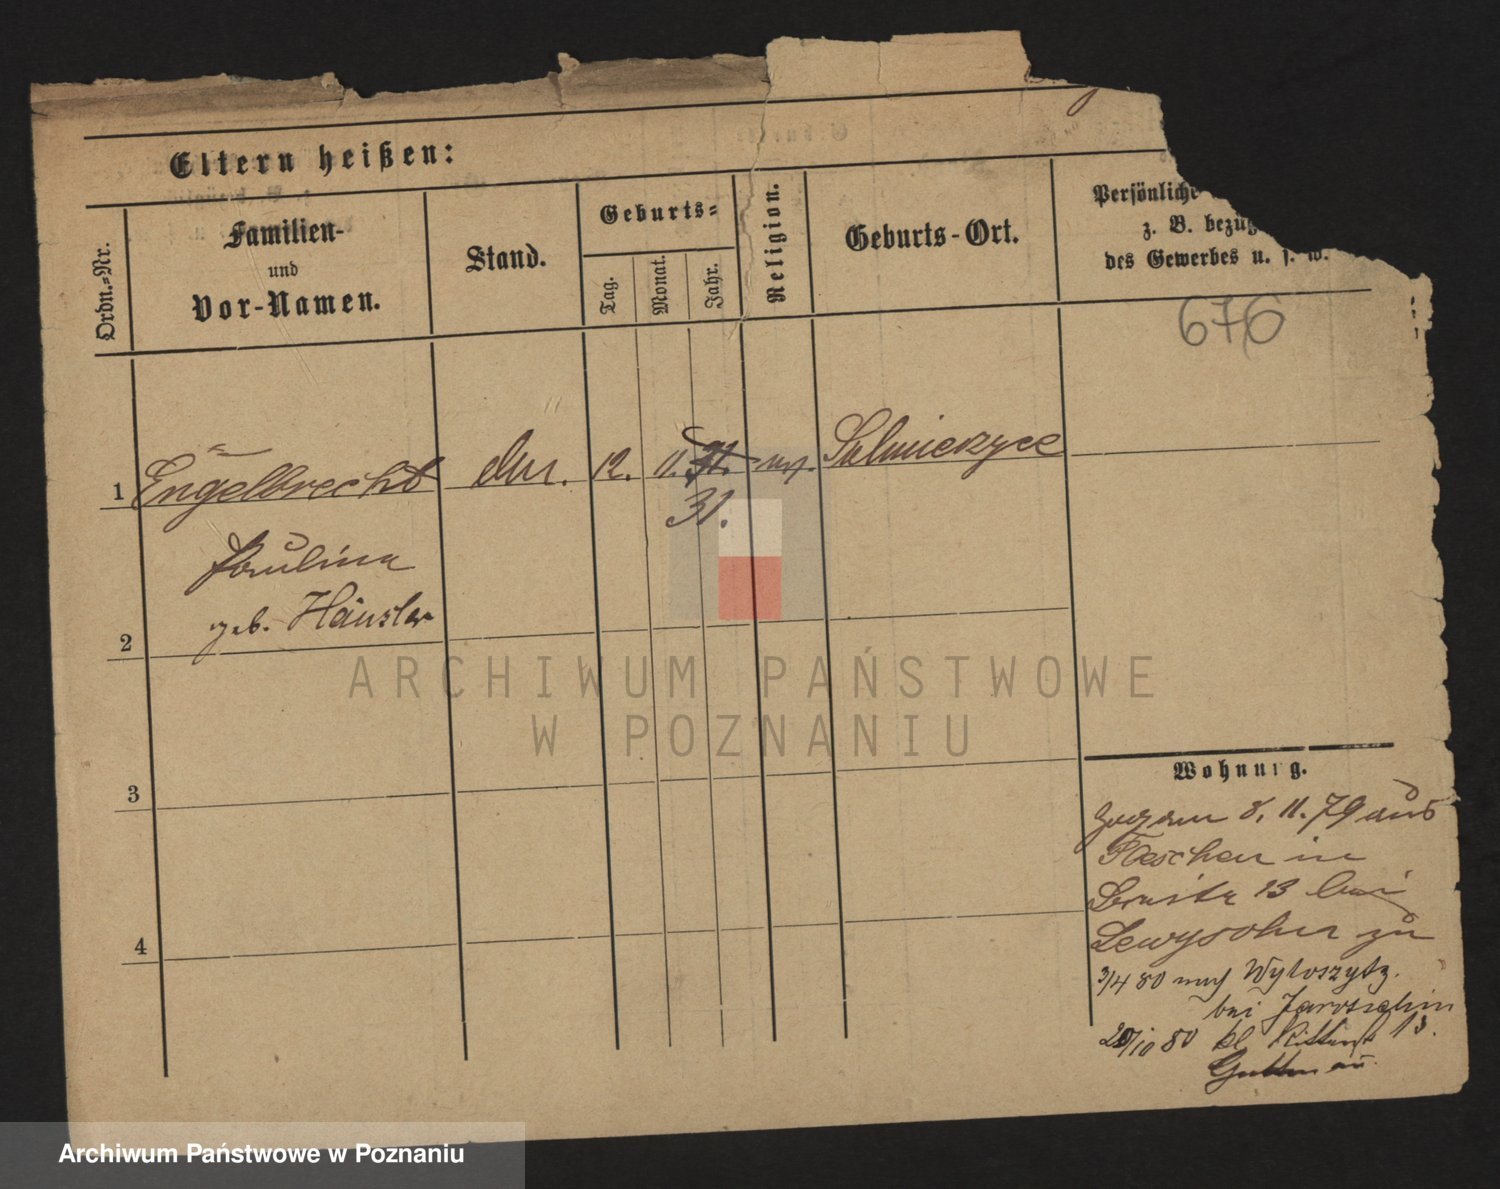 Eltern heißen:
Ordn.-Nr.
Familien-
und
Vor-Namen.
Stand.
Geburts-
Tag.
Monat.
Jahr.
Religion.
Geburts-Ort.
Persönliche
z. B. bezüg
des Gewerbes u. s. w.
676
1
Engelbrecht
12. 11. 31.
Sulmierzyce
Paulina
geb. Häusler
2
3
4
Wohnung.
zog am 8. 11. 79 aus
Pleschen in
13 bei
Lewysohn zu
3/4 80 nach Wyloszytz.
bei Jarotschin
10 80 kl. Ritterst 13.
Guttmann
ARCHIWUM PAŃSTWOWE
W POZNANIU
Archiwum Państwowe w Poznaniu